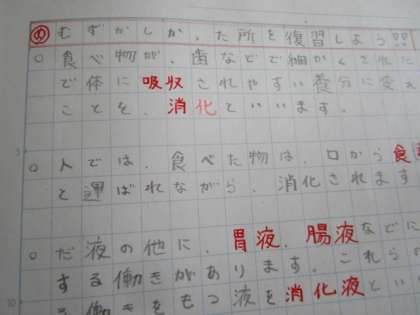 め むずかしかった所を復習しよう!!
○ 食べ物が、歯などで細かくされた
で体に吸収されやすい養分に変え
ことを、消化といいます。
○ 人では、食べた物は、口から食
と運ばれながら、消化されます
○ だ液の他に、胃液、腸液などに
する働きがあります。これら
る働きをもつ液を消化液とい